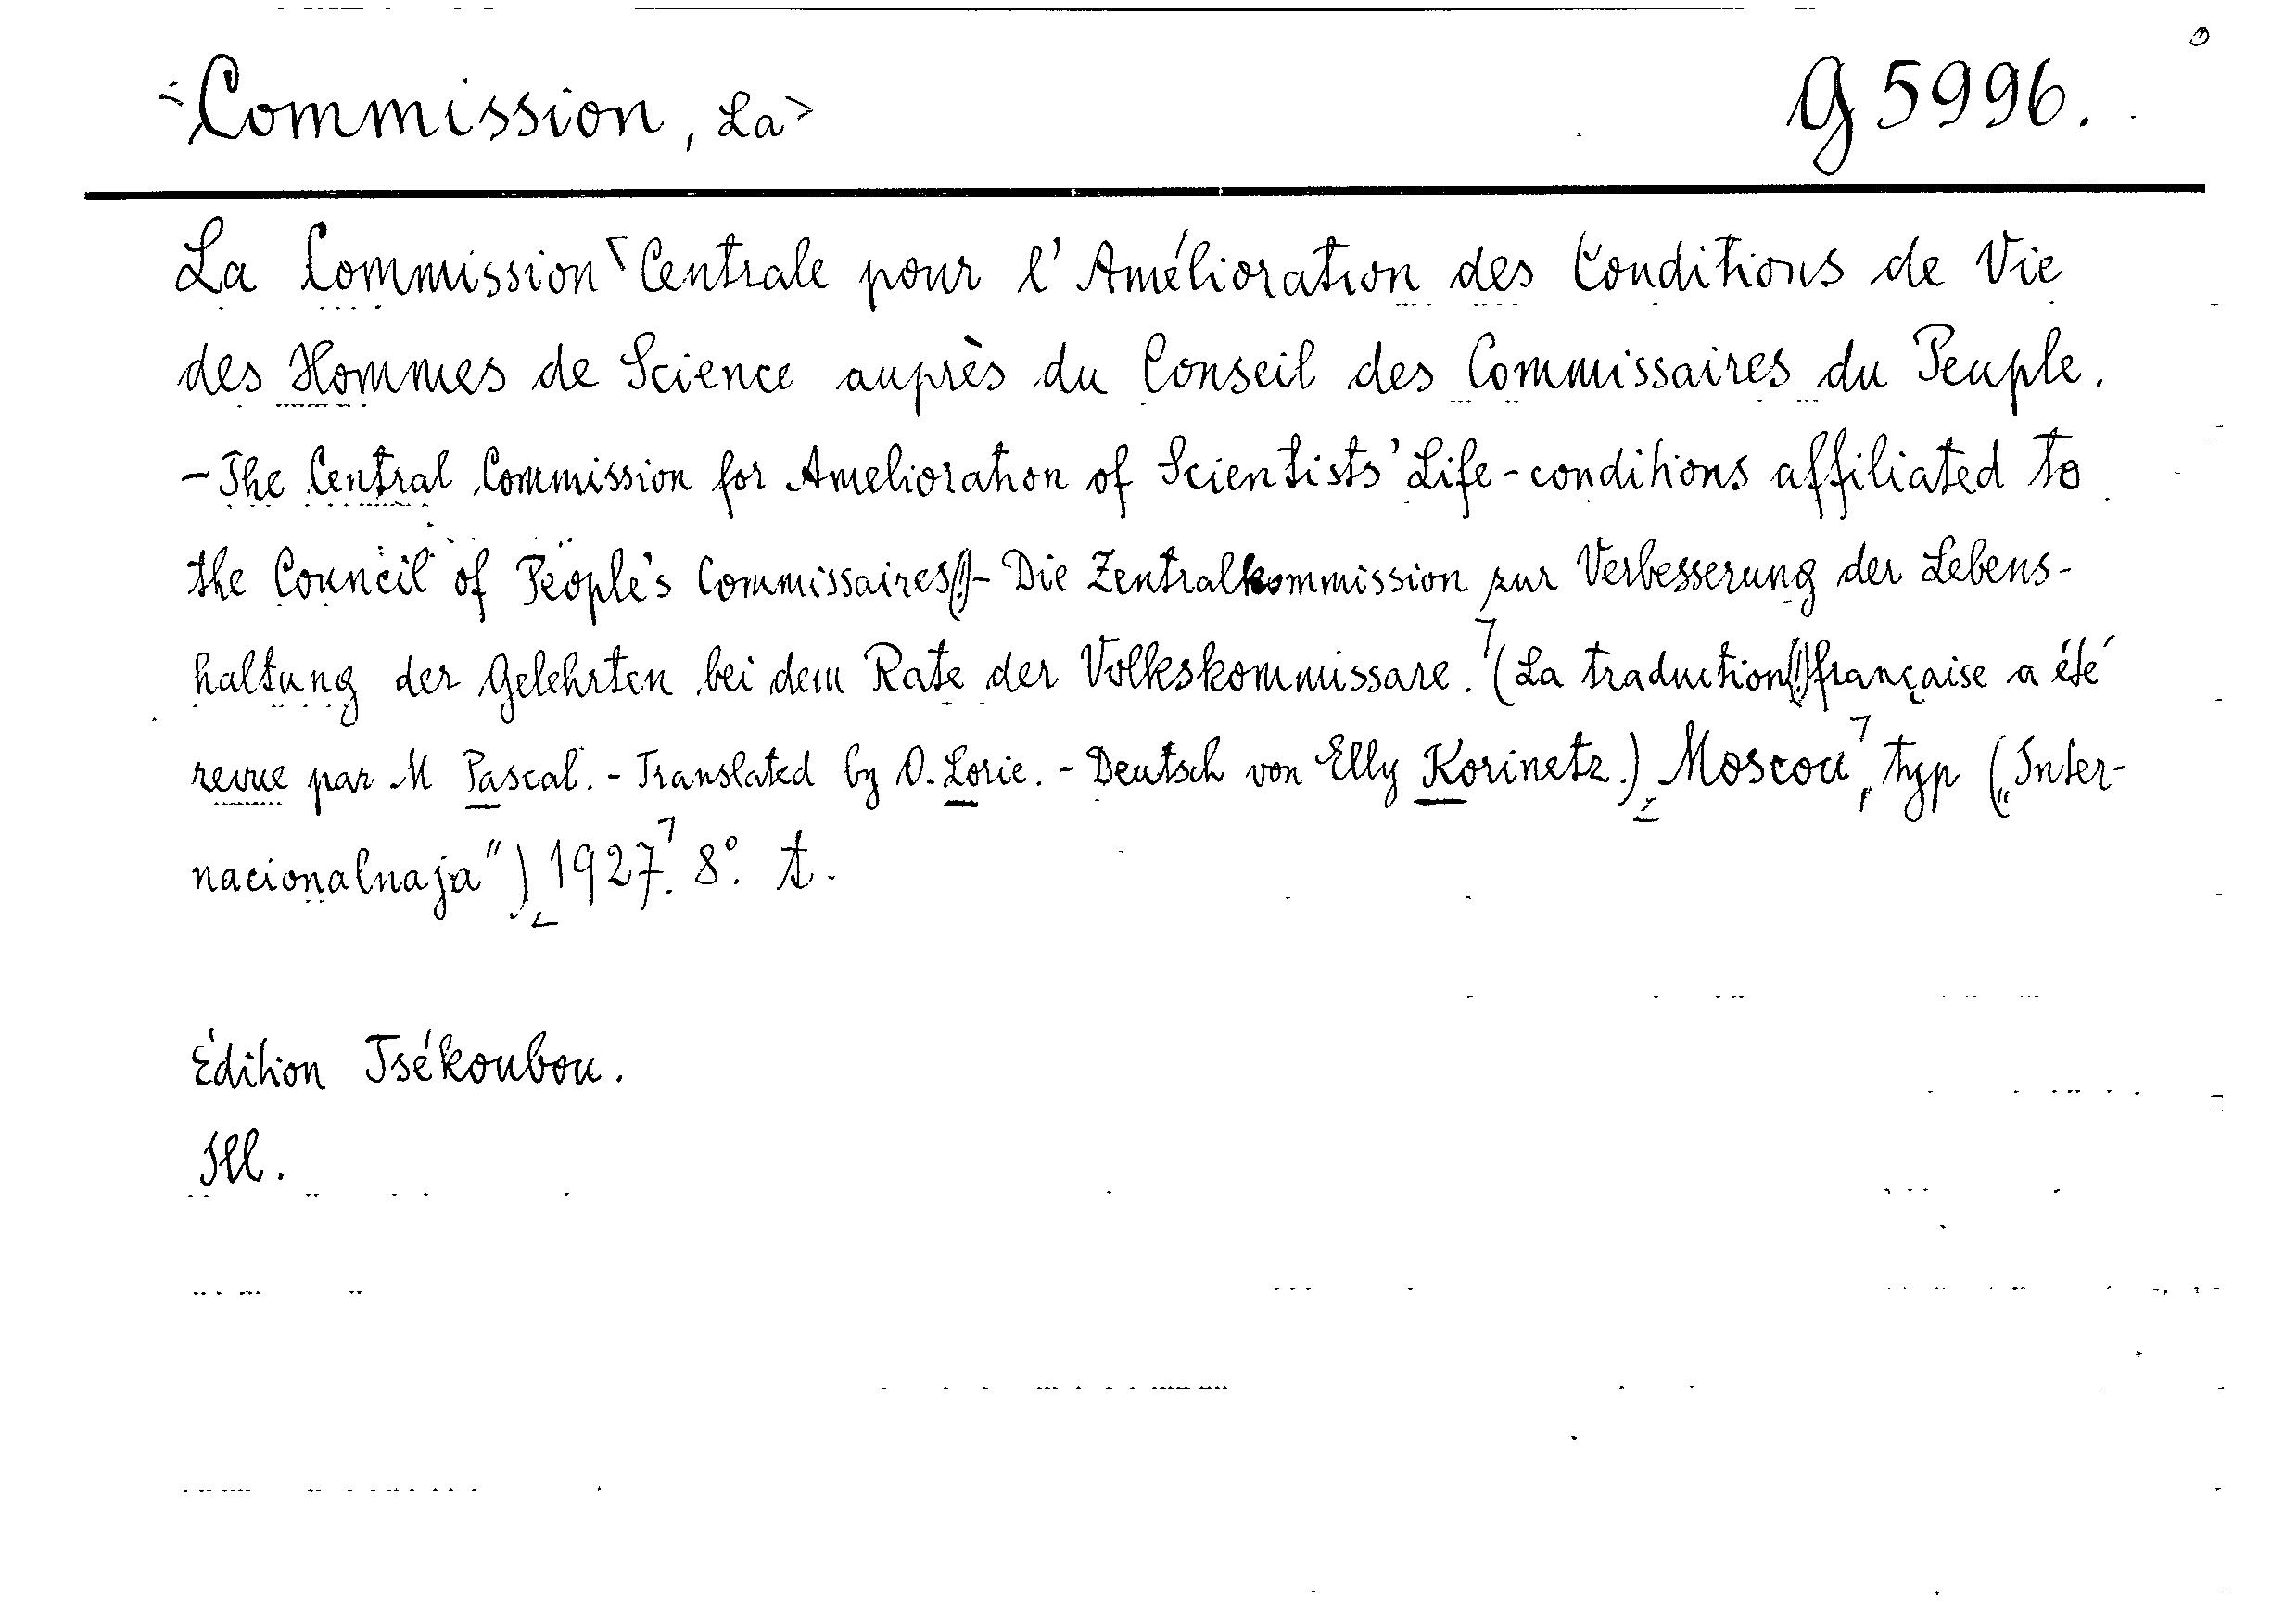 <Commission, La>
G 5996.
La Commission Centrale pour l'Amélioration des Conditions de Vie
des Hommes de Science auprès du Conseil des Commissaires du Peuple.
- The Central Commission for Amelioration of Scientists' Life-conditions affiliated to
the Council of People's Commissaires(!) - Die Zentralkommission zur Verbesserung der Lebens-
haltung der Gelehrten bei dem Rate der Volkskommissare. (La traduction(!) française a été
revue par M Pascal. - Translated by O. Lorie. - Deutsch von Elly Korinetz.) Moscou, typ („Inter-
nacionalnaja") 1927. 8°. t.
Édition Tsékoubou.
Ill.